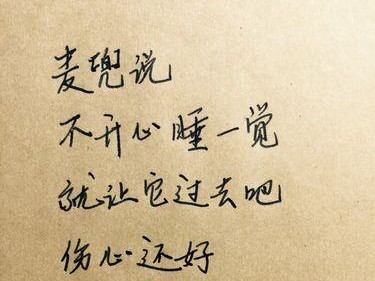 麦兜说
不开心睡一觉
就让它过去吧
伤心还好